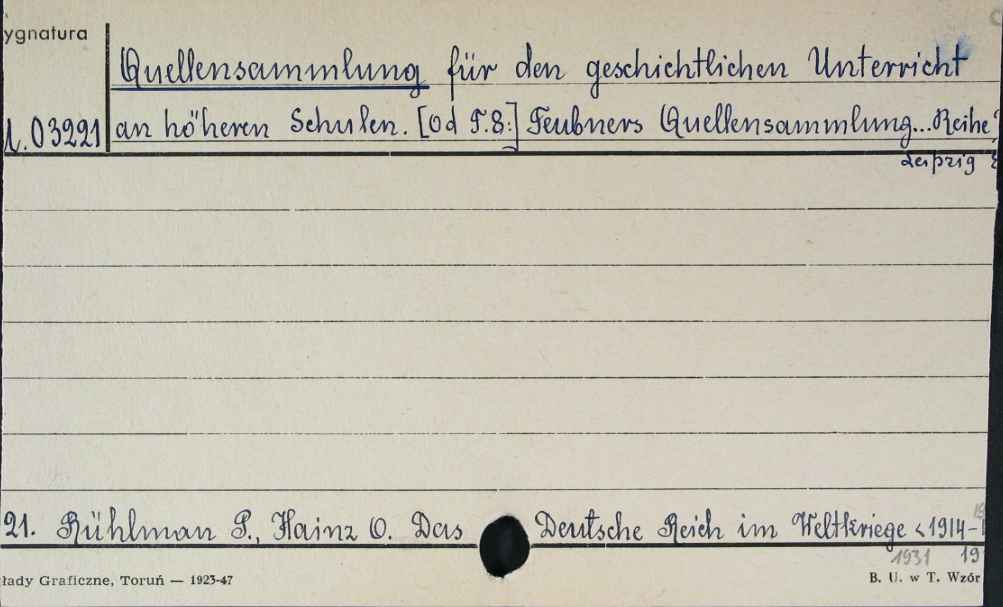 ygnatura
Quellensammlung für den geschichtlichen Unterricht
03221 an höheren Schulen. [Od T.8:] Teubners Quellensammlung... Reihe
Leipzig
21. Rühlman P., Hainz O. Das Deutsche Reich im Weltkriege <1914-
1931 19
łady Graficzne, Toruń — 1923-47
B. U. w T. Wzór